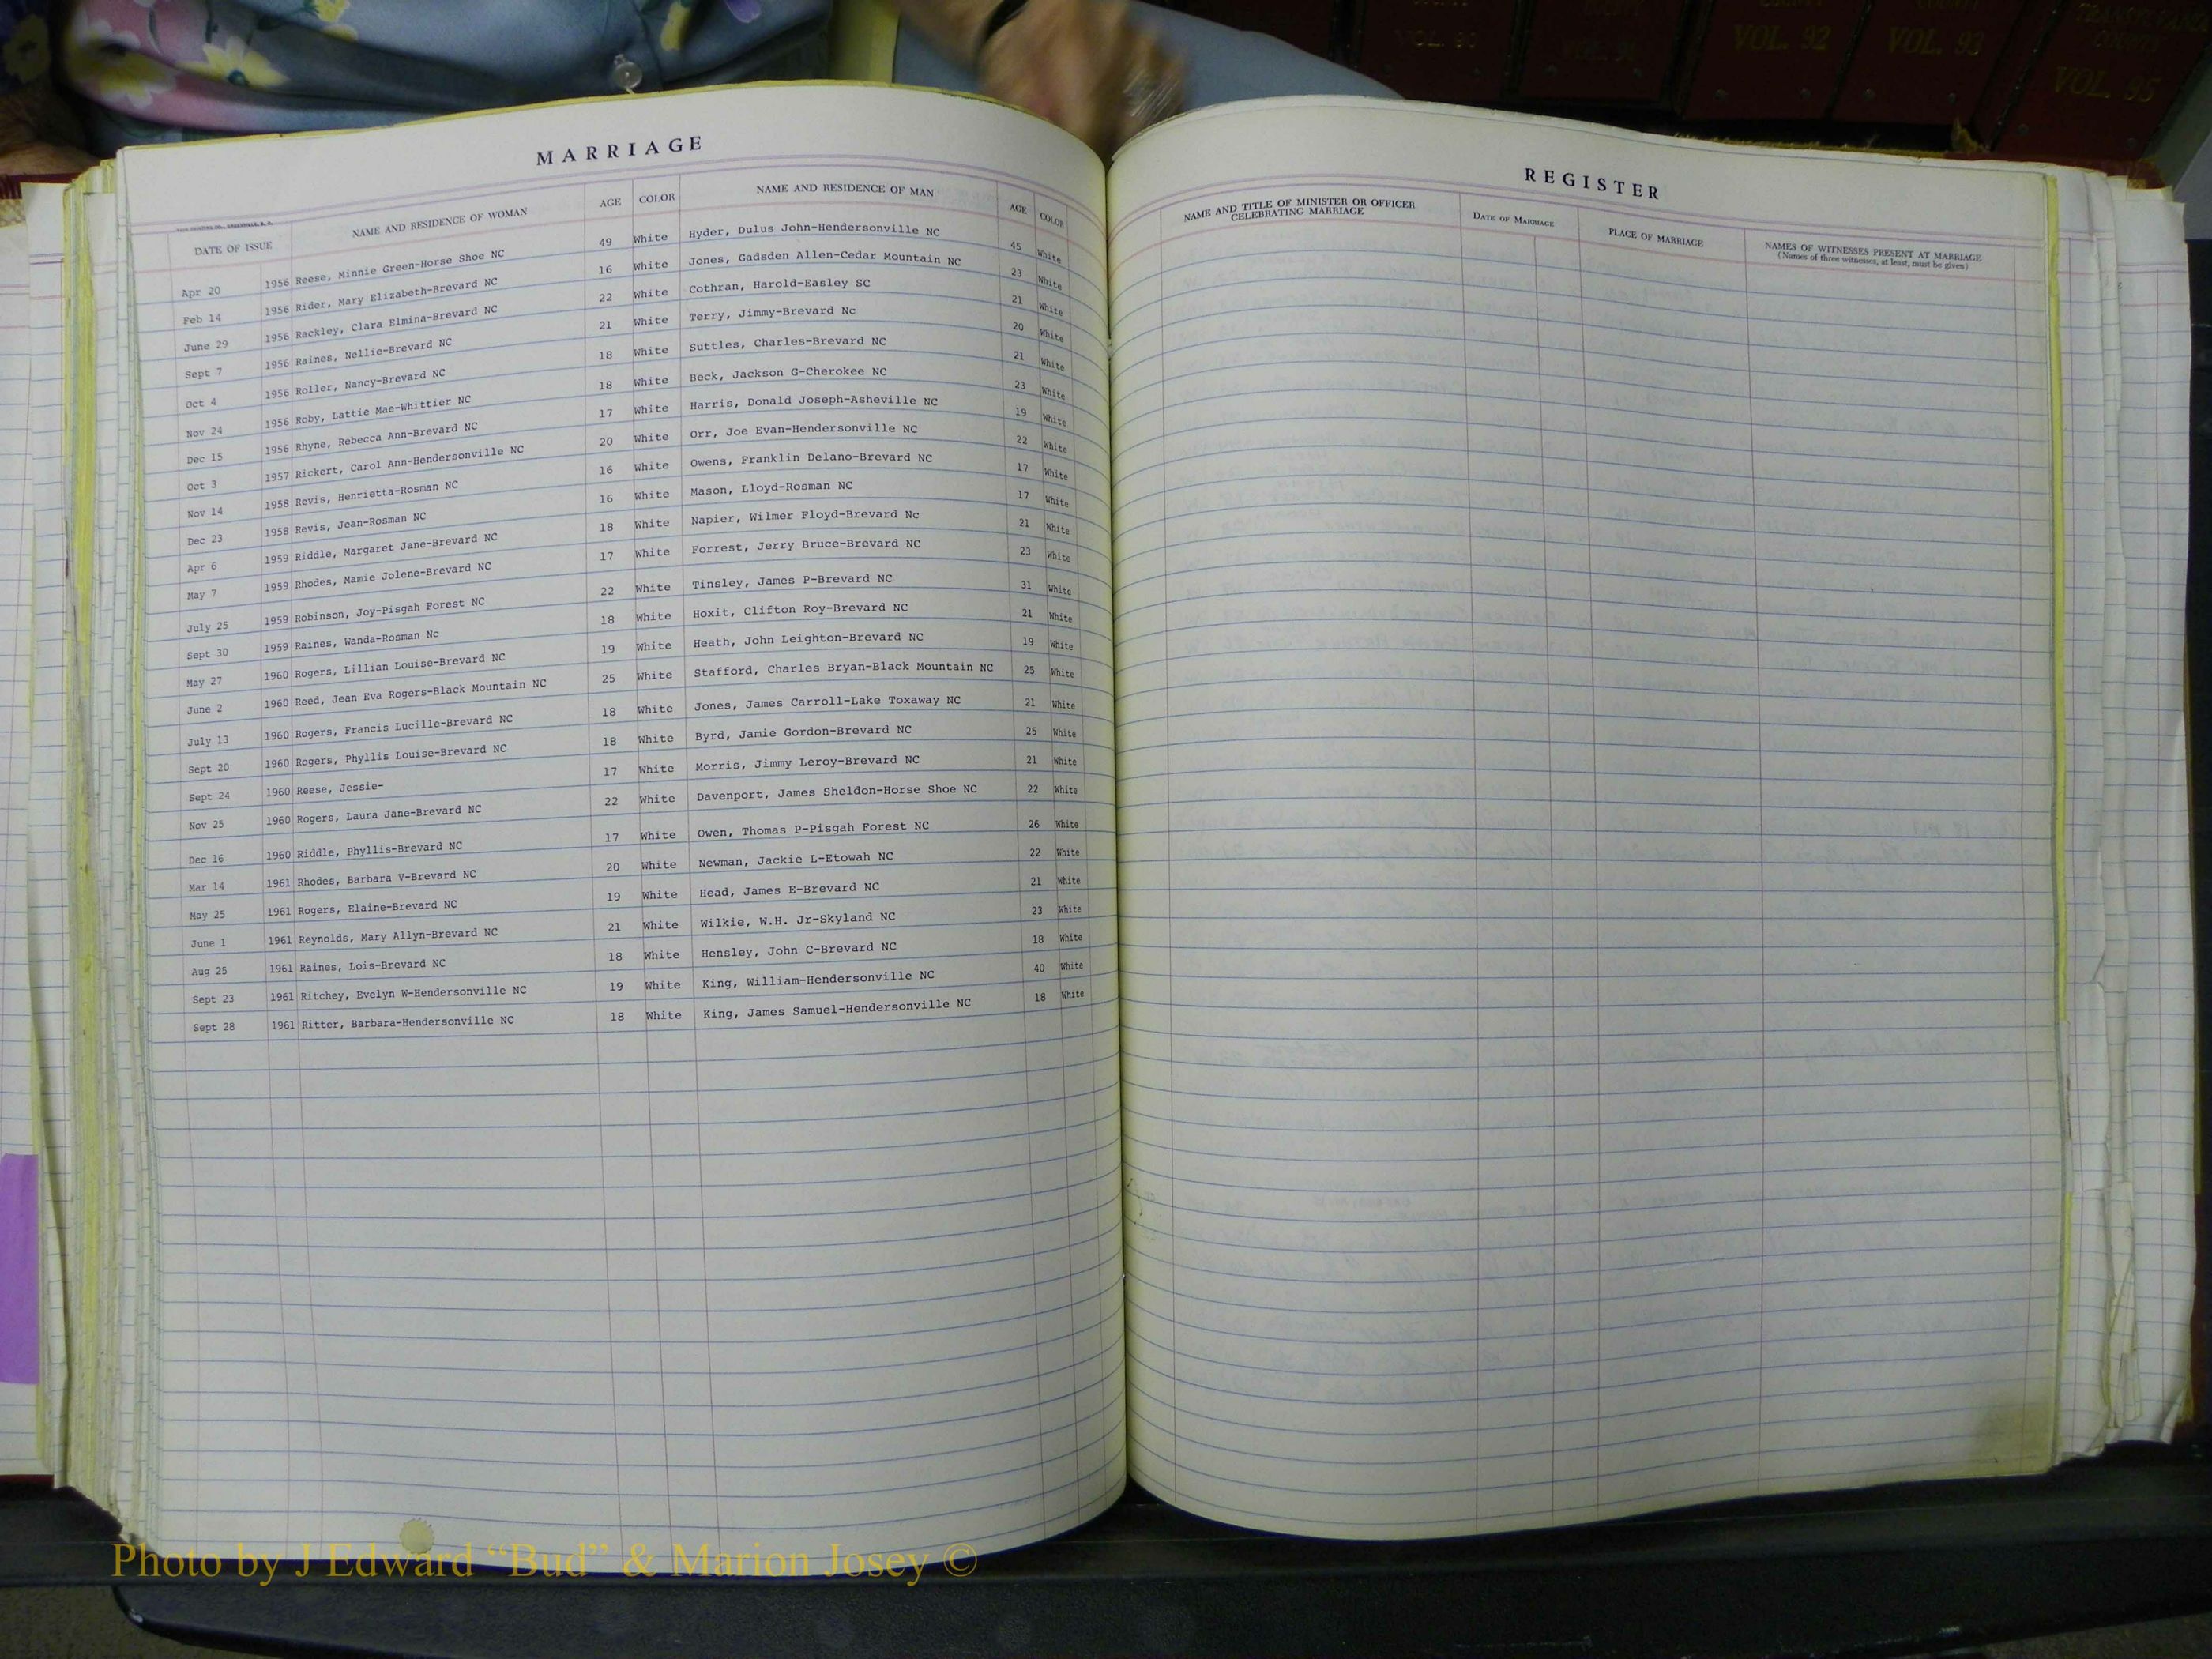 VOL. 92
COUNTY
VOL. 93
COUNTY
VOL. 95
MARRIAGE
DATE OF ISSUE NAME AND RESIDENCE OF WOMAN AGE COLOR NAME AND RESIDENCE OF MAN AGE COLOR
Apr 20 1956 Reese, Minnie Green-Horse Shoe NC 49 White Hyder, Dulus John-Hendersonville NC 45 White
Feb 14 1956 Rider, Mary Elizabeth-Brevard NC 16 White Jones, Gadsden Allen-Cedar Mountain NC 23 White
June 29 1956 Rackley, Clara Elmina-Brevard NC 22 White Cothran, Harold-Easley SC 21 White
Sept 7 1956 Raines, Nellie-Brevard NC 21 White Terry, Jimmy-Brevard Nc 20 White
Oct 4 1956 Roller, Nancy-Brevard NC 18 White Suttles, Charles-Brevard NC 21 White
Nov 24 1956 Roby, Lattie Mae-Whittier NC 18 White Beck, Jackson G-Cherokee NC 23 White
Dec 15 1956 Rhyne, Rebecca Ann-Brevard NC 17 White Harris, Donald Joseph-Asheville NC 19 White
Oct 3 1957 Rickert, Carol Ann-Hendersonville NC 20 White Orr, Joe Evan-Hendersonville NC 22 White
Nov 14 1958 Revis, Henrietta-Rosman NC 16 White Owens, Franklin Delano-Brevard NC 17 White
Dec 23 1958 Revis, Jean-Rosman NC 16 White Mason, Lloyd-Rosman NC 17 White
Apr 6 1959 Riddle, Margaret Jane-Brevard NC 18 White Napier, Wilmer Floyd-Brevard Nc 21 White
May 7 1959 Rhodes, Mamie Jolene-Brevard NC 17 White Forrest, Jerry Bruce-Brevard NC 23 White
July 25 1959 Robinson, Joy-Pisgah Forest NC 22 White Tinsley, James P-Brevard NC 31 White
Sept 30 1959 Raines, Wanda-Rosman Nc 18 White Hoxit, Clifton Roy-Brevard NC 21 White
May 27 1960 Rogers, Lillian Louise-Brevard NC 19 White Heath, John Leighton-Brevard NC 19 White
June 2 1960 Reed, Jean Eva Rogers-Black Mountain NC 25 White Stafford, Charles Bryan-Black Mountain NC 25 White
July 13 1960 Rogers, Francis Lucille-Brevard NC 18 White Jones, James Carroll-Lake Toxaway NC 21 White
Sept 20 1960 Rogers, Phyllis Louise-Brevard NC 18 White Byrd, Jamie Gordon-Brevard NC 25 White
Sept 24 1960 Reese, Jessie- 17 White Morris, Jimmy Leroy-Brevard NC 21 White
Nov 25 1960 Rogers, Laura Jane-Brevard NC 22 White Davenport, James Sheldon-Horse Shoe NC 22 White
Dec 16 1960 Riddle, Phyllis-Brevard NC 17 White Owen, Thomas P-Pisgah Forest NC 26 White
Mar 14 1961 Rhodes, Barbara V-Brevard NC 20 White Newman, Jackie L-Etowah NC 22 White
May 25 1961 Rogers, Elaine-Brevard NC 19 White Head, James E-Brevard NC 21 White
June 1 1961 Reynolds, Mary Allyn-Brevard NC 21 White Wilkie, W.H. Jr-Skyland NC 23 White
Aug 25 1961 Raines, Lois-Brevard NC 18 White Hensley, John C-Brevard NC 18 White
Sept 23 1961 Ritchey, Evelyn W-Hendersonville NC 19 White King, William-Hendersonville NC 40 White
Sept 28 1961 Ritter, Barbara-Hendersonville NC 18 White King, James Samuel-Hendersonville NC 18 White
REGISTER
NAME AND TITLE OF MINISTER OR OFFICER
CELEBRATING MARRIAGE
DATE OF MARRIAGE
PLACE OF MARRIAGE
NAMES OF WITNESSES PRESENT AT MARRIAGE
(Names of three witnesses, at least, must be given)
Photo by J Edward “Bud” & Marion Josey ©